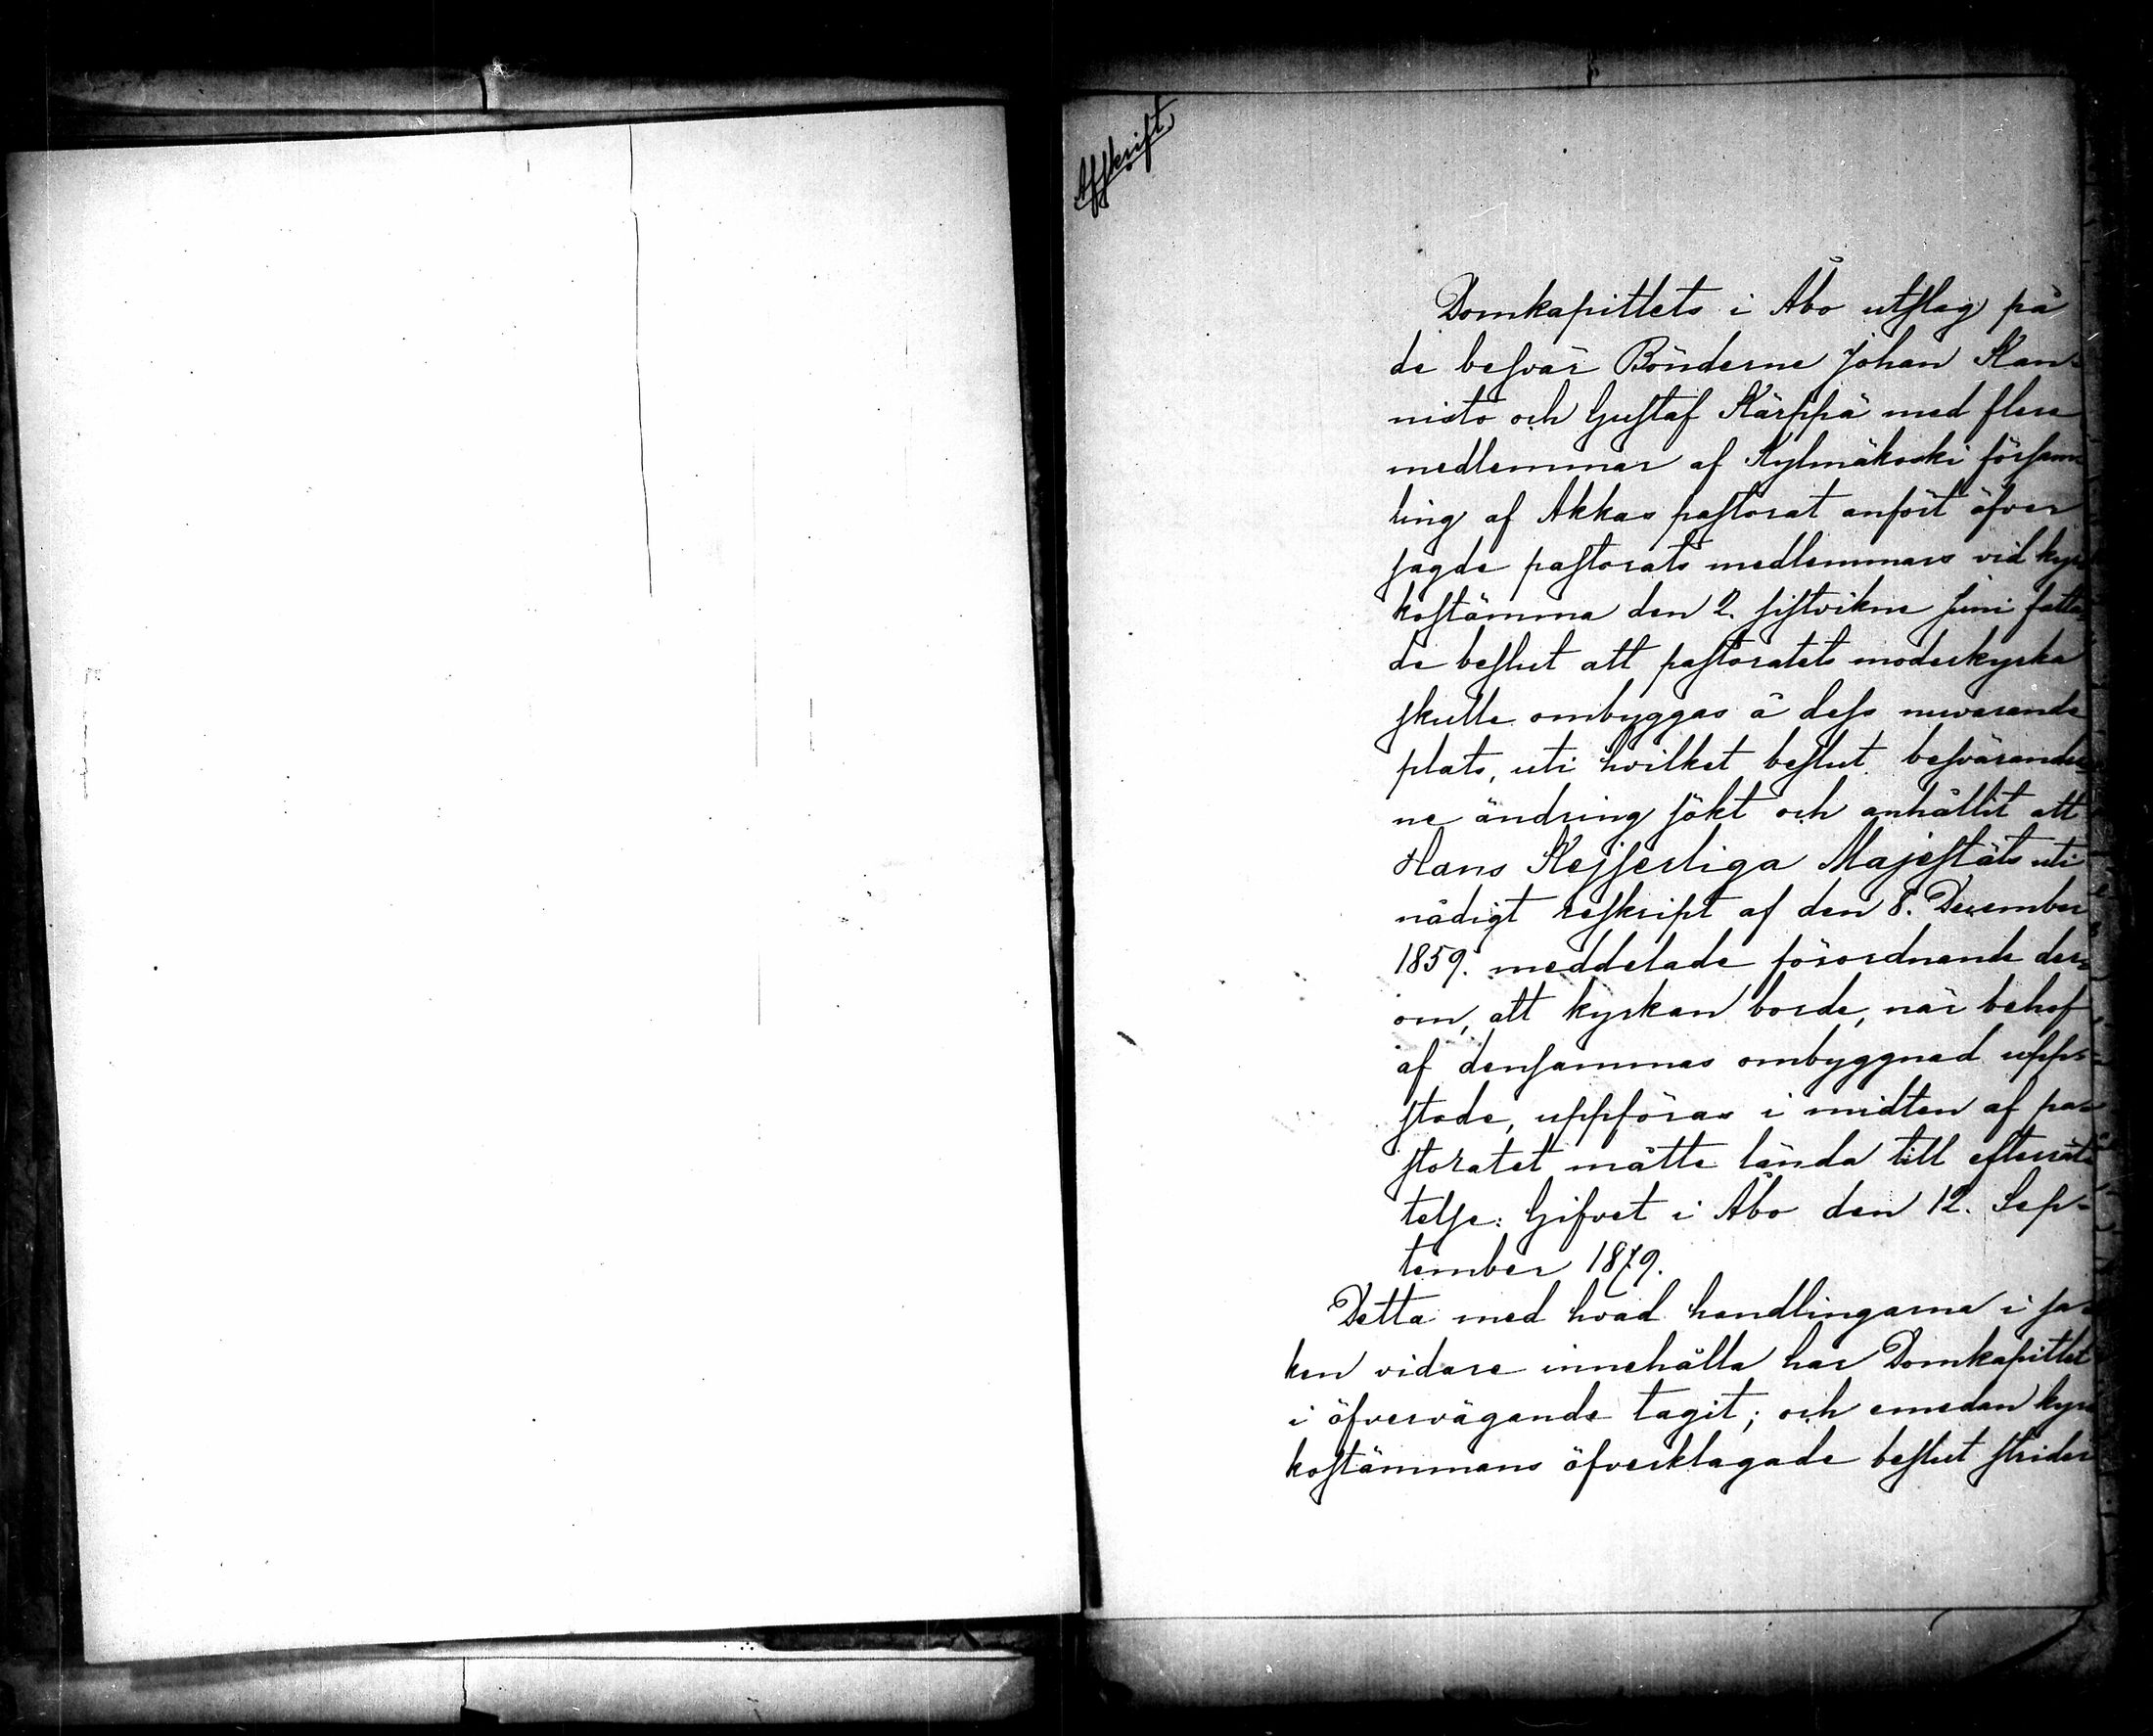 Afskrift,
Domkapitlets i Åbo utslag på
de besvär Bönderne Johan Kan-
nisto och Gustaf Kärppä med flere
medlemmar af Kylmäkoski försam-
ling af Akkas pastorat anfört öfver
sagde pastorats medlemmars vid kyr-
kostämma den 2. sistvikne Juni fatta-
de beslut att pastoratets moderkyrka
skulle ombyggas å dess nuvarande
plats, uti hvilket beslut besvärander-
ne ändring sökt och anhållit att
Hans Kejserliga Majestäts uti
nådigt reskript af den 8. December
1859. meddelade förordnande der-
om, att kyrkan borde, när behof
af densammas ombyggnad upp-
stode, uppföras i midten af pa-
storatet måtte lända till efterrät-
telse: Gifvet i Åbo den 12. Sep-
tember 1879.
Detta med hvad handlingarna i sa-
ken vidare innehålla har Domkapitlet
i öfvervägande tagit; och emedan kyr-
kostämmans öfverklagade beslut strider